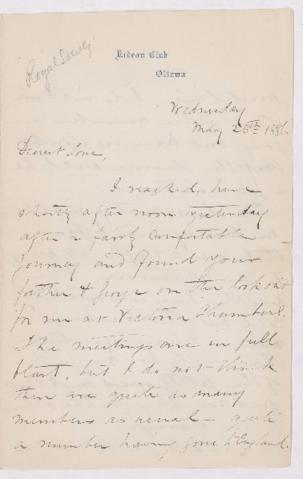 Royal Society
Rideau Club
Ottawa
Wednesday
May 26th 1886
Dearest Love,
I reached here
shortly after noon yesterday
after a fairly comfortable
journey and found your
father & George on the look out
for me at Victoria Chambers.
The meetings are in full
blast, but I do not think
there are quite as many
members as usual – quite
a number having gone to England.